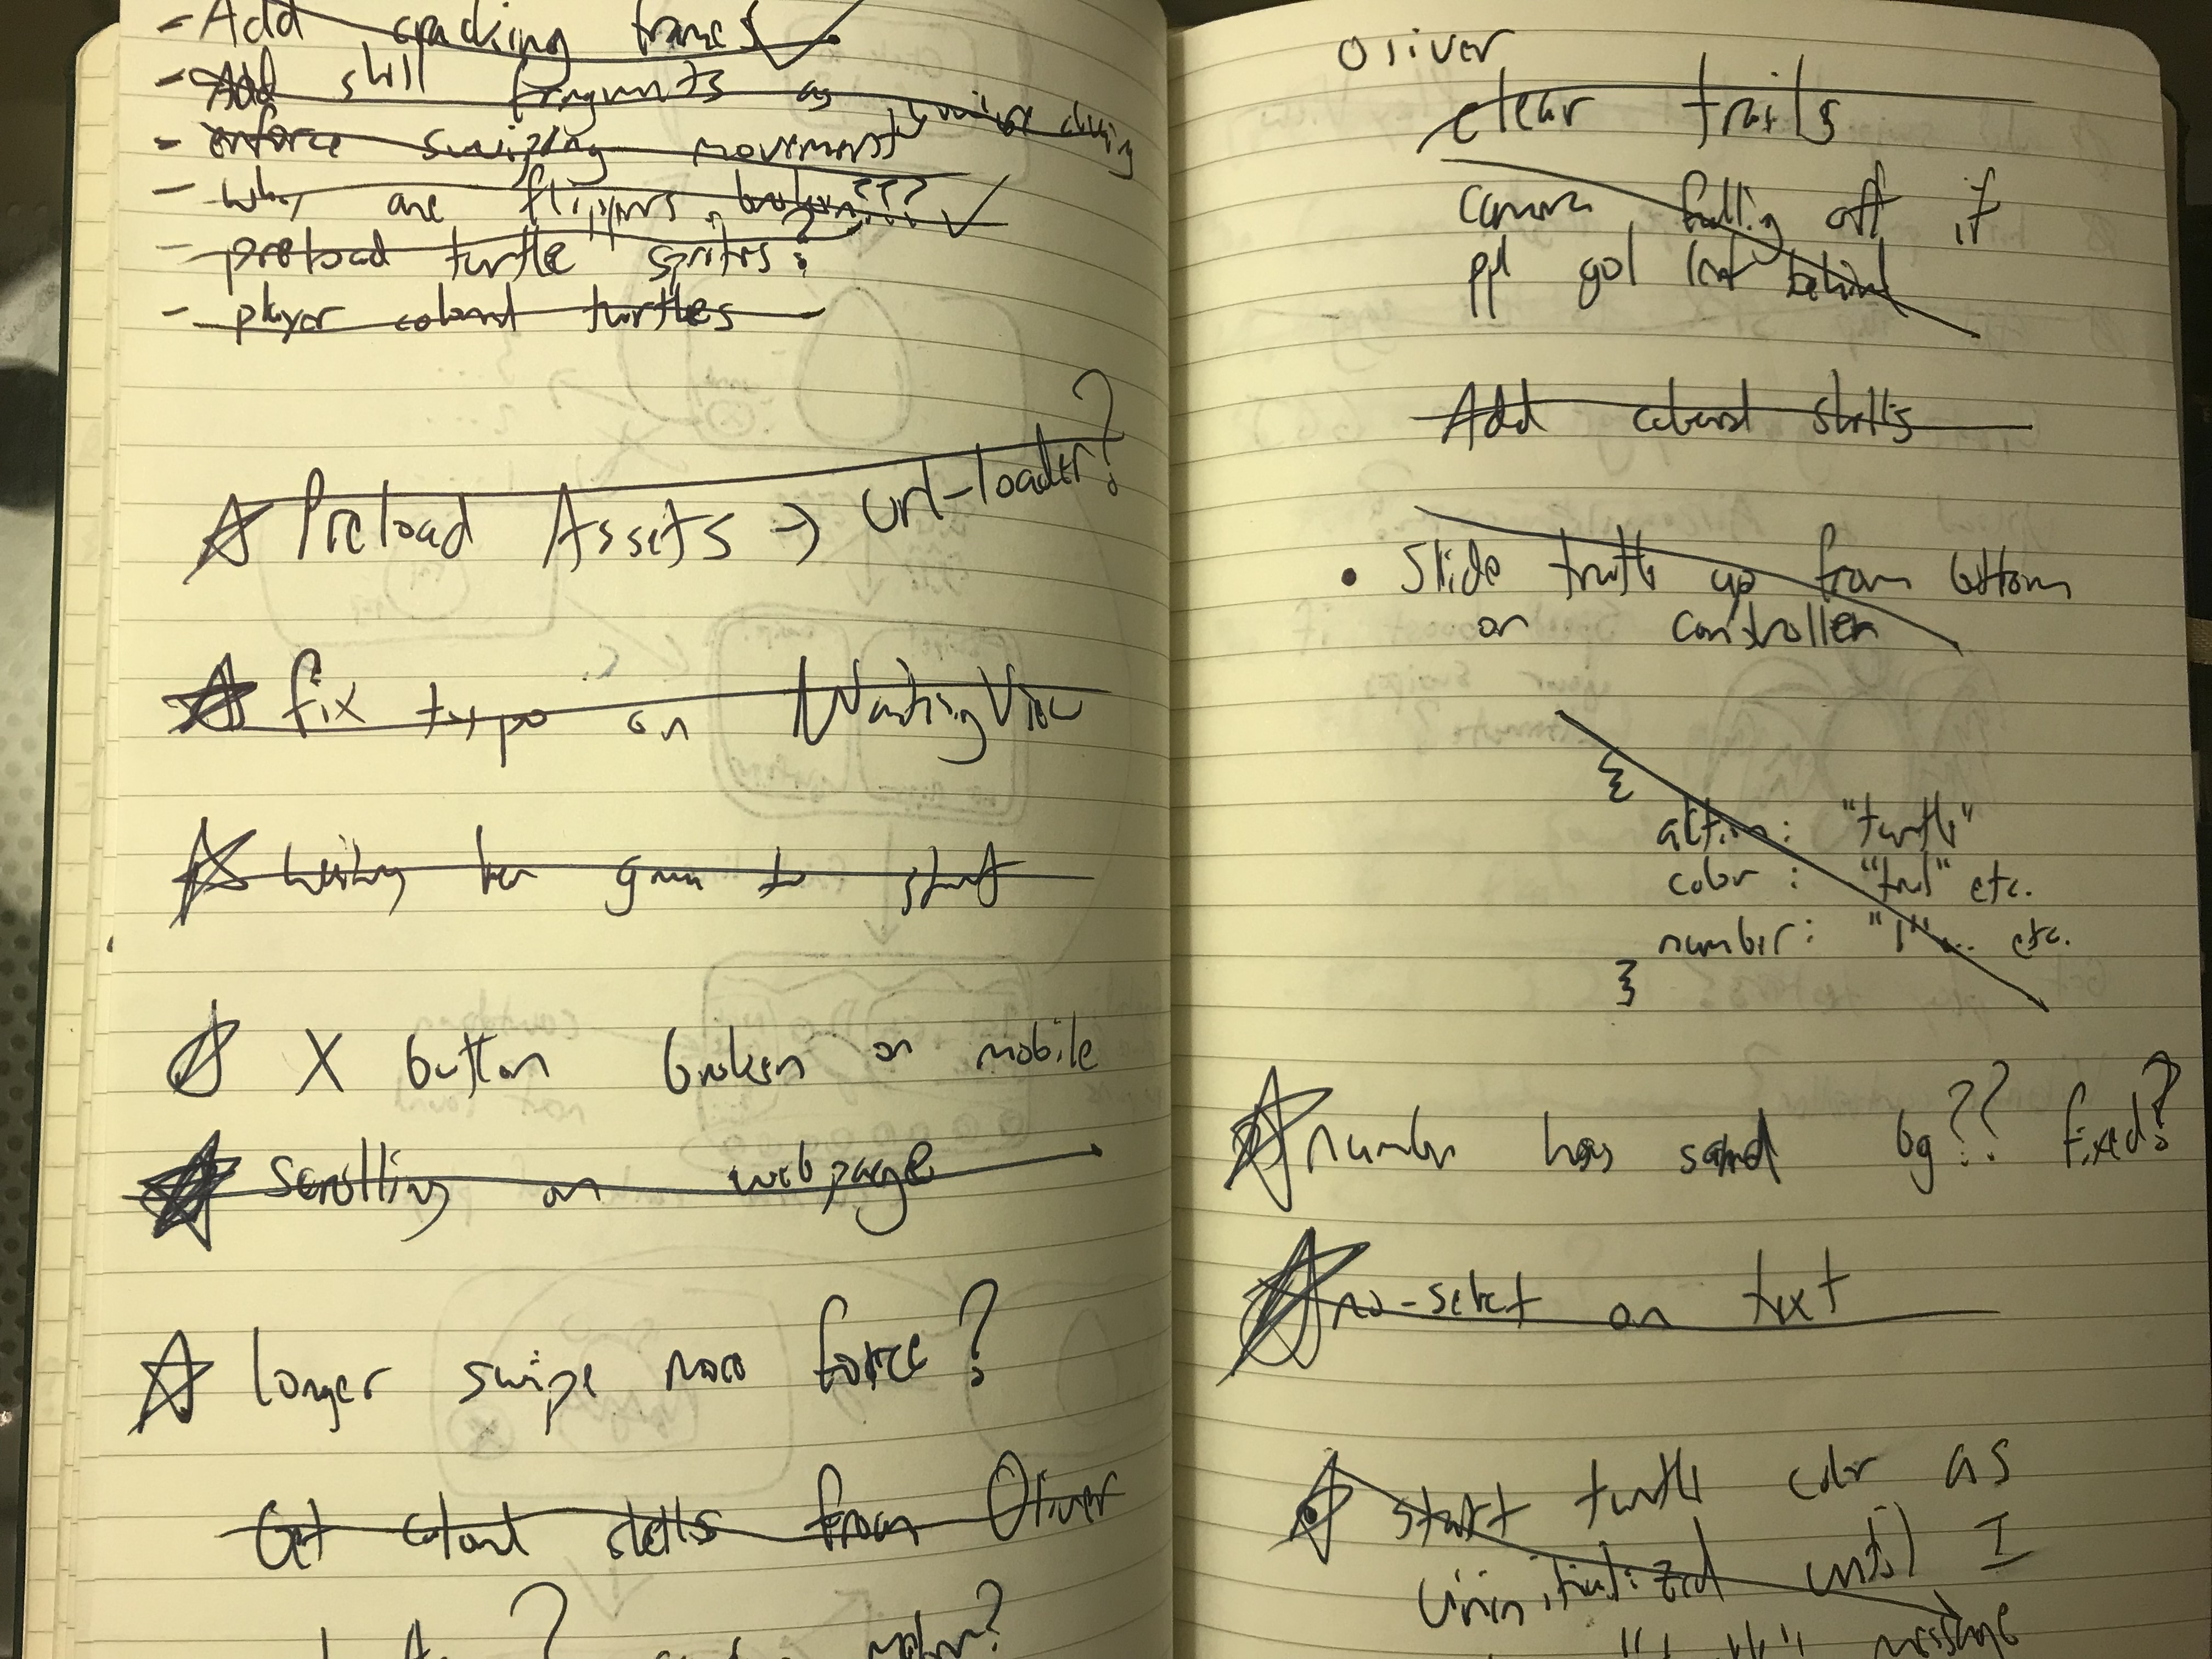 - Add cracking frames
- Add shell fragments as
- enforce swiping movement
- why are flippers broken???
- preload turtle sprites?
- player colored turtles
Preload Assets → url-loader?
fix typo on WaitingView
waiting for game to start
X button broken on mobile
Scrolling on webpage
longer swipe more force?
Get colored shells from Oliver
Oliver
clear trails
camera falling off if
ppl got left behind
Add colored shells
• Slide turtle up from bottom
on controller
{
action: "turtle"
color: etc.
number: "1"... etc.
}
number has sand bg?? fixed?
no-select on text
start turtle color as
uninitialized until I
message